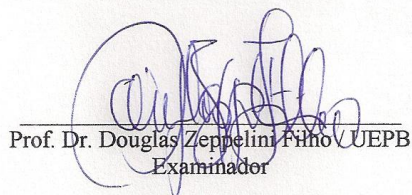 Prof. Dr. Douglas Zeppelini Filho / UEPB
Examinador